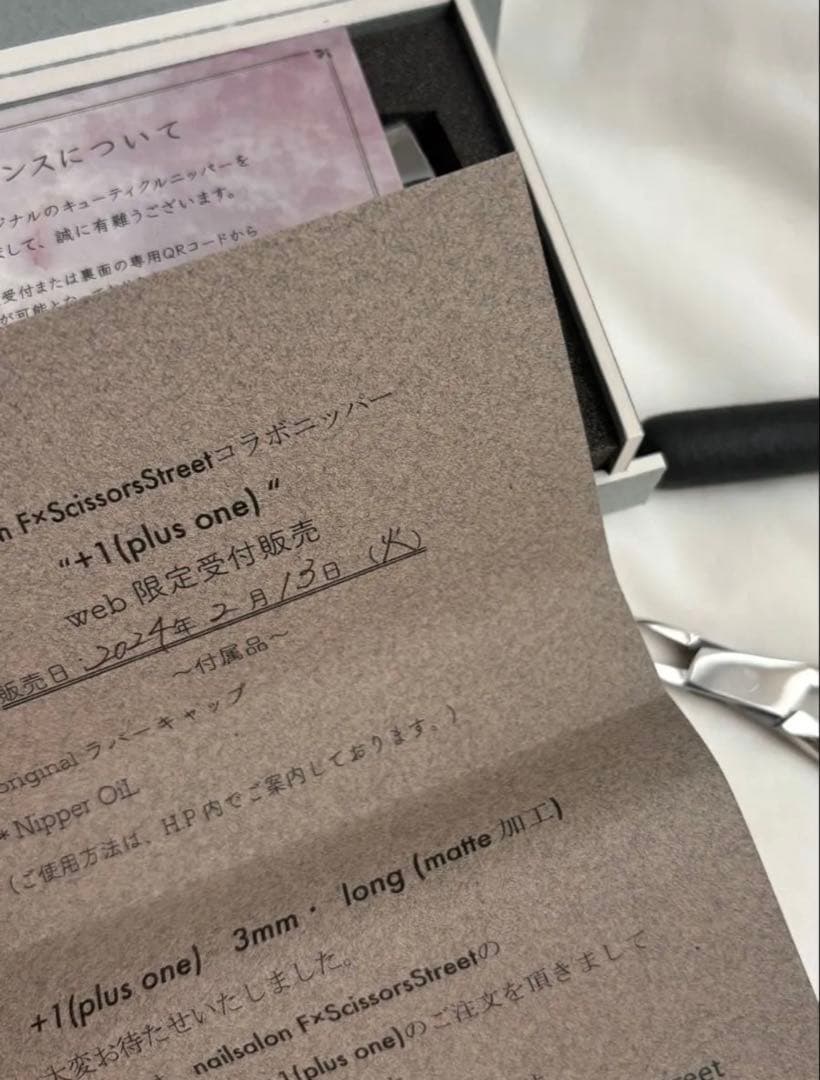 ンスについて
ジナルのキューティクルニッパーを
まして、誠に有難うございます。
受付または裏面の専用QRコードから
が可能となって
n F×ScissorsStreetコラボニッパー
“+1(plus one)“
web 限定受付販売
販売日：2024年 2月 13日（火）
〜付属品〜
original ラバーキャップ
* Nipper OiL
（ご使用方法は、H.P 内でご案内しております。）
+1(plus one) 3mm・ long (matte 加工)
大変お待たせいたしました。
nailsalon F×ScissorsStreetの
1(plus one)のご注文を頂きまして
reet